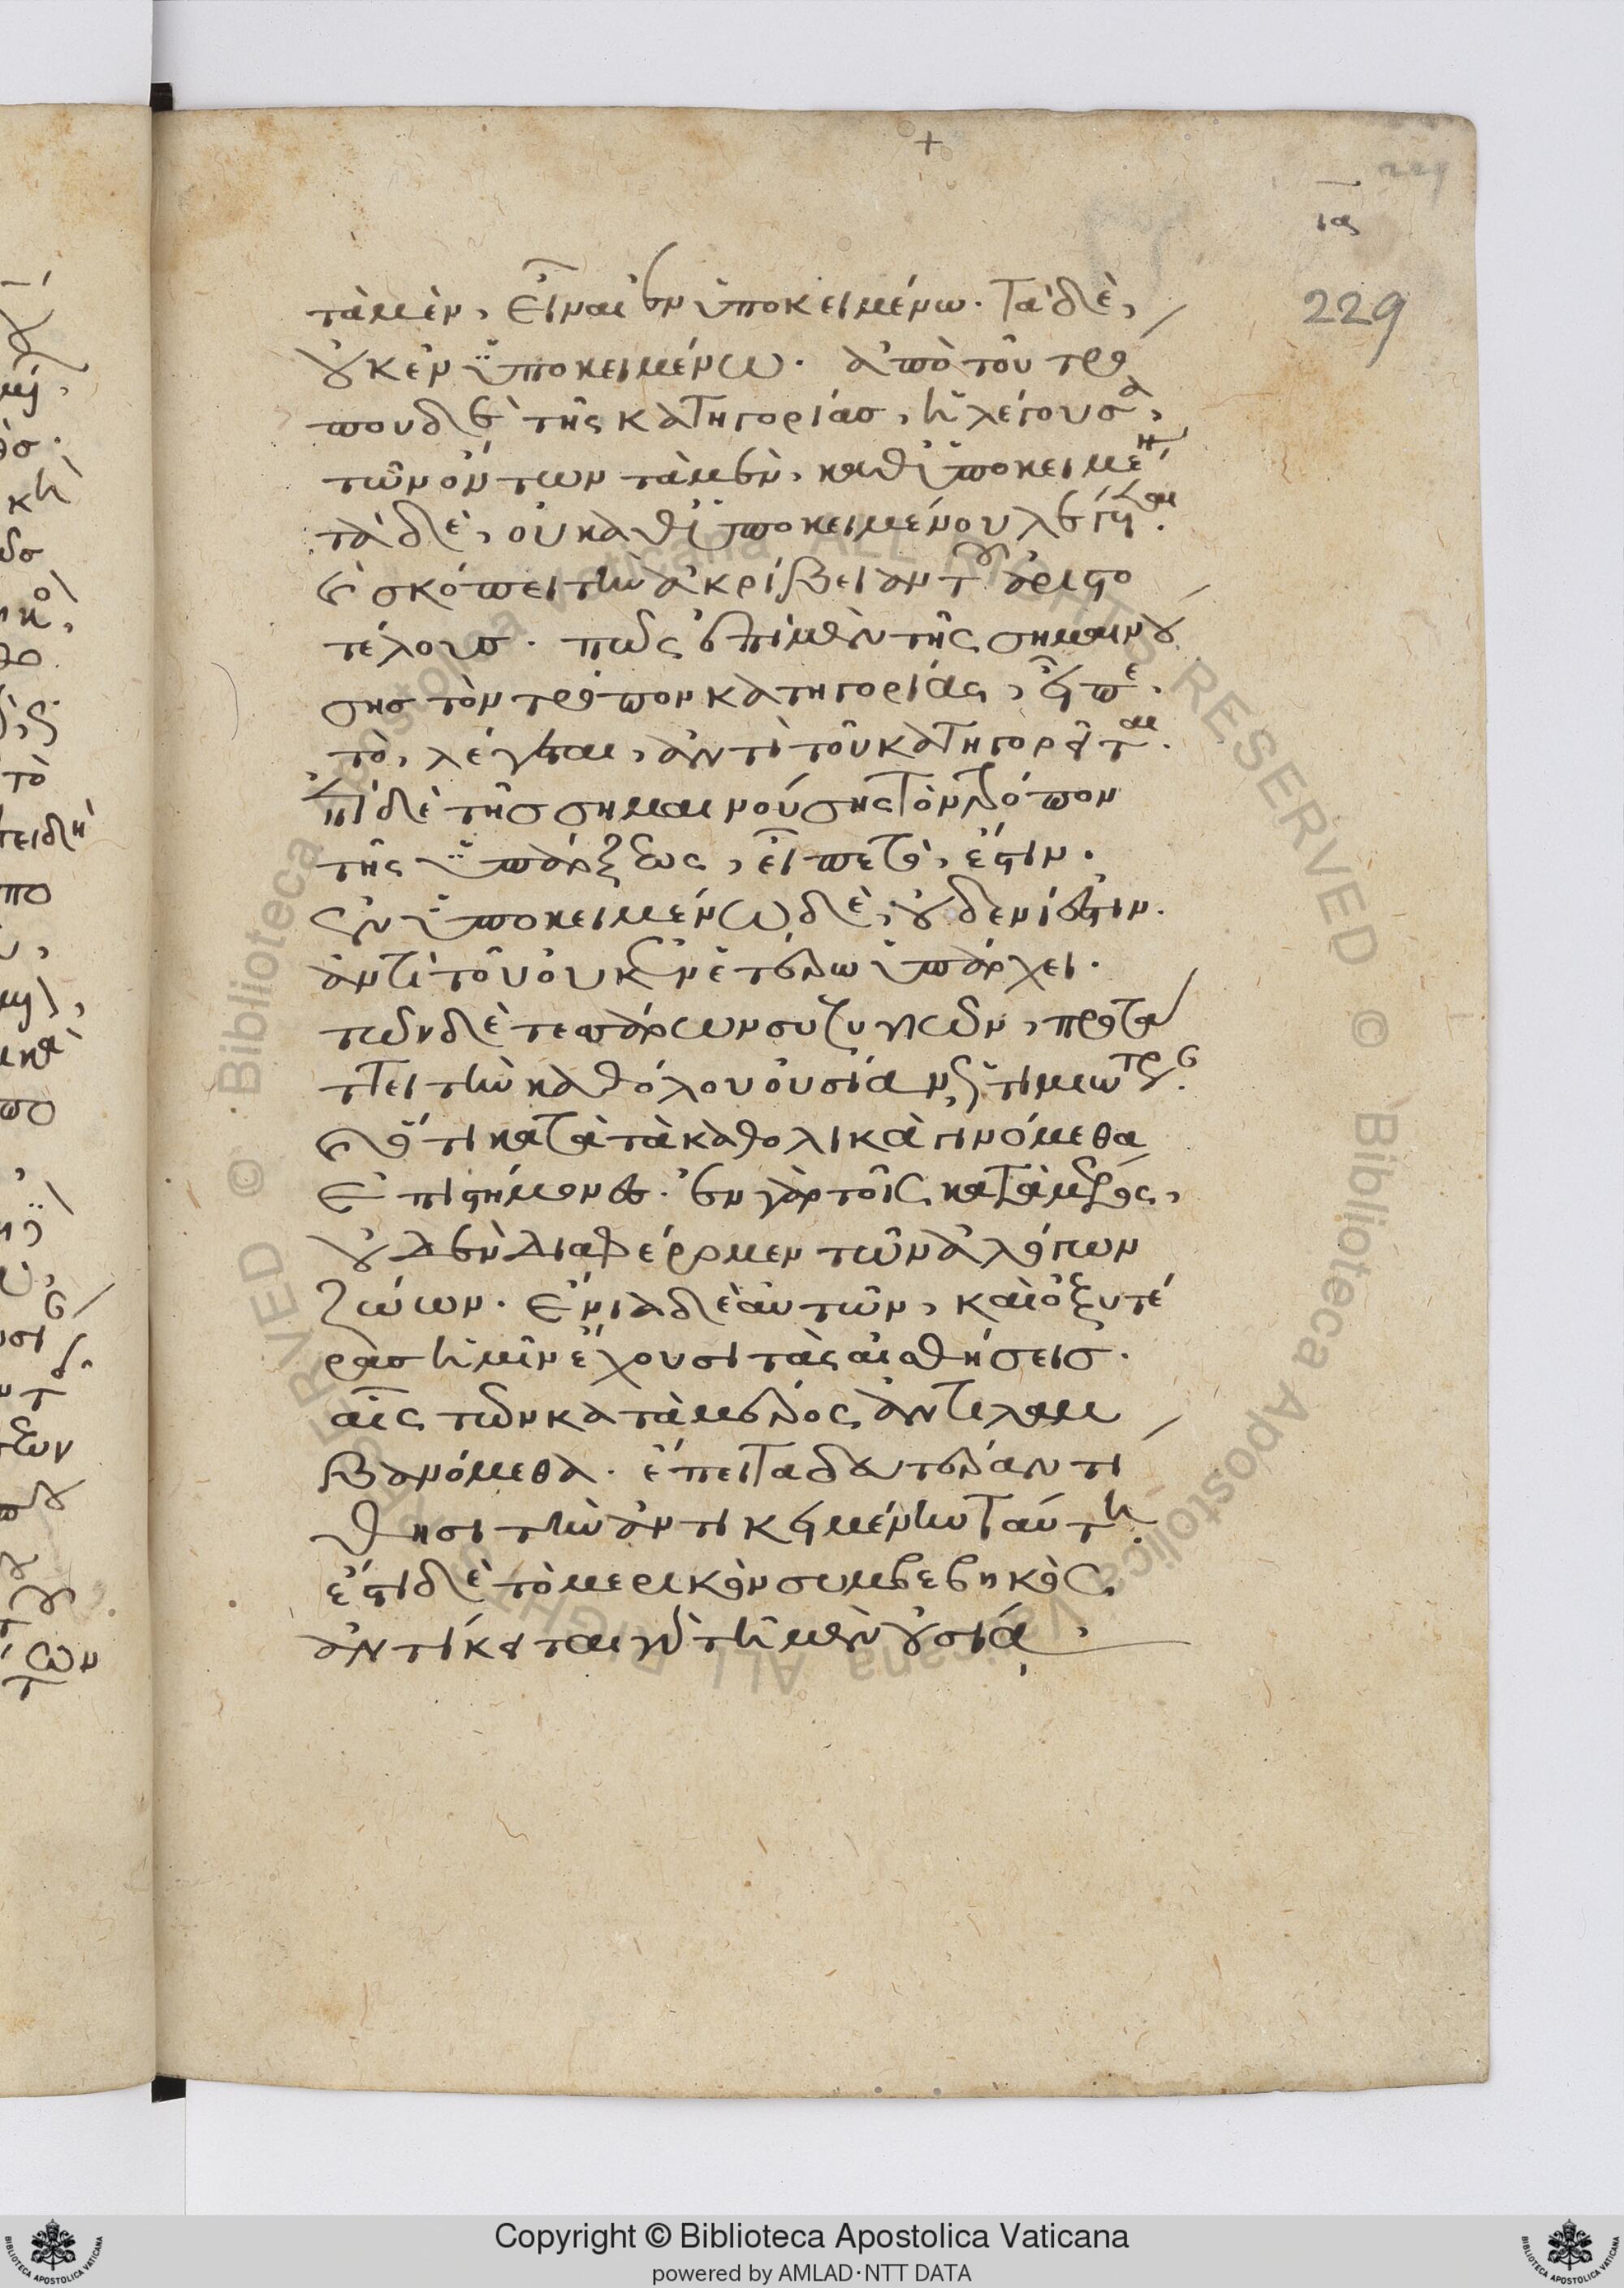 +
229
ιϛ
229
τὰ μὲν, εἶναι ἐν ὑποκειμένω. τὰ δὲ,
οὐκ ἐν ὑποκειμένω. ἀπὸ τοῦ τρό
που δὲ τῆς κατηγορίας, ἡ λέγουσα,
τῶν ὄντων τὰ μὲν, καθ' ὑποκειμέν
τὰ δὲ, οὐ καθ' ὑποκειμένου λέγεται.
σκόπει τὴν ἀκρίβειαν τοῦ ἀριστο
τέλους. πῶς ἐπὶ μὲν τῆς σημαινού
σης τὸν τρόπον κατηγορίας, εἶπε,
τὸ, λέγεται, ἀντὶ τοῦ κατηγορεῖται.
ἐπὶ δὲ τῆς σημαινούσης τὸν τρόπον
τῆς ὑπάρξεως, εἶπε τὸ, ἔστιν.
ἐν ὑποκειμένω δὲ, οὐδενί ἐστιν.
ἀντὶ τοῦ οὐκ ἐν ἑτέρω ὑπάρχει.
τῶν δὲ τεσσάρων συζυγιῶν, προτά
ττει τὴν καθόλου οὐσίαν ὡς τιμιωτέραν.
διότι κατὰ τὰ καθολικὰ γινόμεθα
ἐπιστήμονες. ἐν γὰρ τοῖς κατὰ μέρος,
οὐδὲν διαφέρομεν τῶν ἀλόγων
ζώων. ἔνια δὲ αὐτῶν, καὶ ὀξυτέ
ρας ἡμῖν ἔχουσι τὰς αἰσθήσεις.
αἷς τῶν κατὰ μέρος ἀντιλαμ
βανόμεθα. ἔπειτα δευτέραν τί
θησι τὴν ἀντικειμένην ταύτη.
ἔστι δὲ τὸ μερικὸν συμβεβηκὸς,
ἀντίκειται γὰρ τῆ μὲν οὐσία.
Copyright © Biblioteca Apostolica Vaticana
powered by AMLAD·NTT DATA